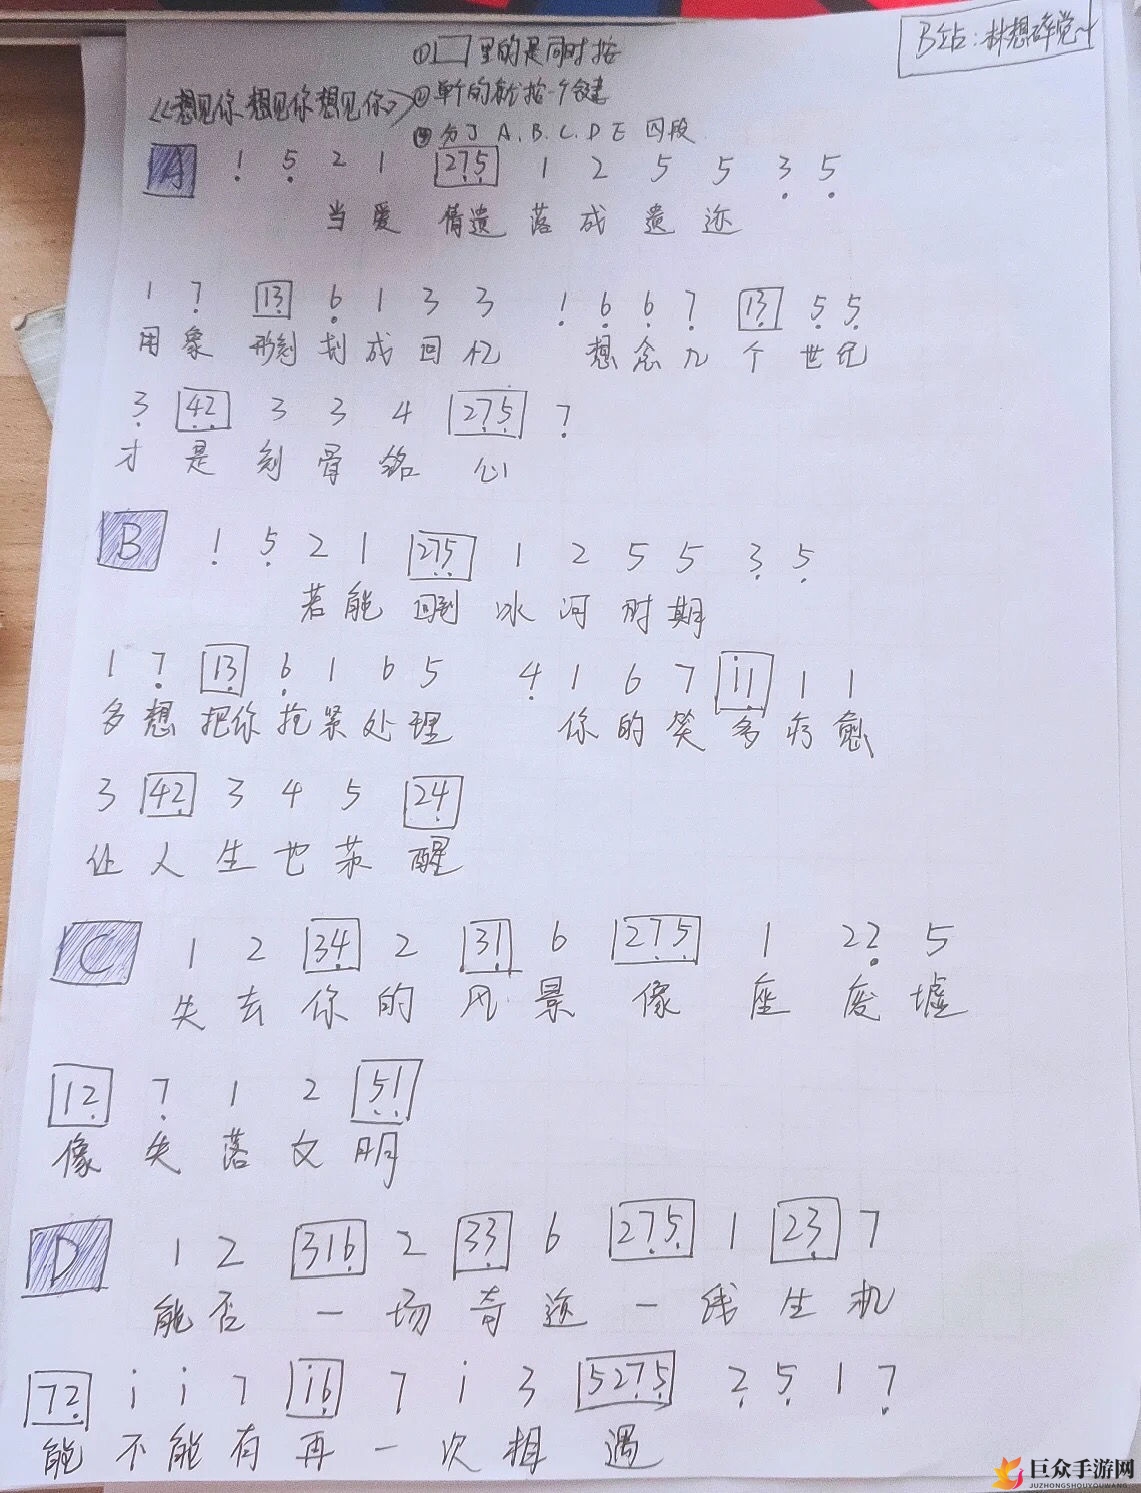 ①□里的是同时按
B站:林想碎觉~
《想见你想见你想见你》②单个的就按一个键
③分了A.B.C.D E 四段
A 1 5 2 1 275 1 2 5 5 3 5
当 爱 情遗 落 成 遗 迹
1 7 13 6 1 3 3 1 6 6 7 13 5 5
用 象 形刻 划 成 回 忆 想 念 几 个 世纪
3 42 3 3 4 275 7
才 是 刻 骨 铭 心
B 1 5 2 1 275 1 2 5 5 3 5
若 能 回到 冰 河 时 期
1 7 13 6 1 6 5 4 1 6 7 i1 1 1
多 想 把你 抱 紧 处 理 你 的 笑 多 疗 愈
3 42 3 4 5 24
让 人 生 也 苏 醒
C 1 2 34 2 31 6 275 1 22 5
失 去 你 的 风 景 像 座 废 墟
12 7 1 2 51
像 失 落 文 明
D 1 2 316 2 33 6 275 1 23 7
能 否 一 场 奇 迹 一 线 生 机
72 i i 7 i6 7 i 3 5275 2 5 1 7
能 不 能 有 再 一 次 相 遇
巨众手游网
JUZHONGSHOUYOUWANG